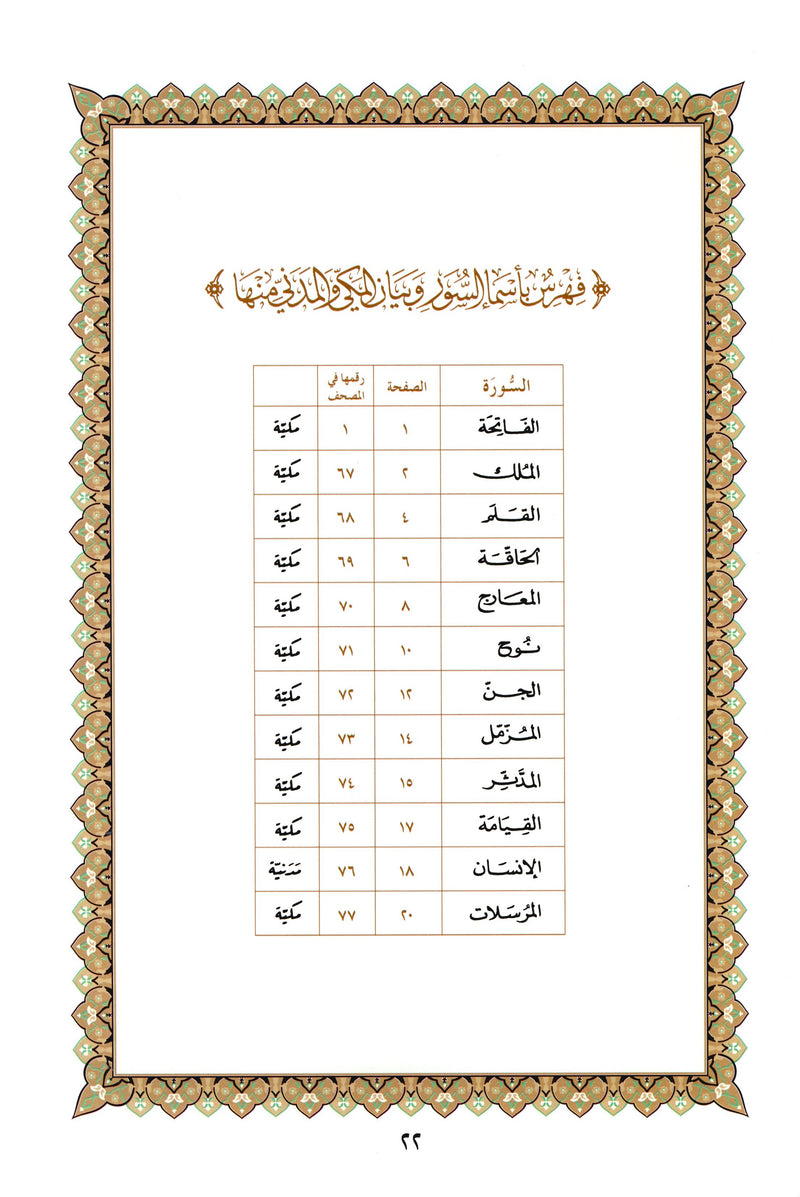 ﴿ فِهْرِسٌ بِأَسْمَاءِ السُّوَرِ وَبَيَانِ المَكِّيِّ وَالمَدَنِيِّ مِنْهَا ﴾
السُّورَة الصفحة رقمها في المصحف
الفَاتِحَة ١ ١ مكيّة
المُلك ٢ ٦٧ مكيّة
القَلَم ٤ ٦٨ مكيّة
الحَاقَّة ٦ ٦٩ مكيّة
المعَارج ٨ ٧٠ مكيّة
نُوح ١٠ ٧١ مكيّة
الجنّ ١٢ ٧٢ مكيّة
المُزّمّل ١٤ ٧٣ مكيّة
المدَّثِّر ١٥ ٧٤ مكيّة
القِيَامَة ١٧ ٧٥ مكيّة
الإنسَان ١٨ ٧٦ مَدَنيّة
المُرسَلات ٢٠ ٧٧ مكيّة
٢٢